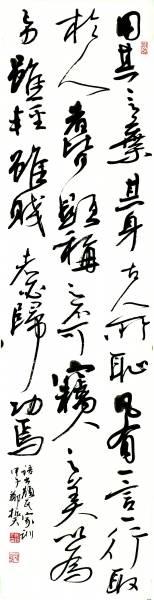 用其言棄其身古人所恥凡有一言一行取
於人者皆顯稱之不可竊人之美以為
己力雖輕雖賤者必歸功焉
語出顏氏家訓
甲子 鄭